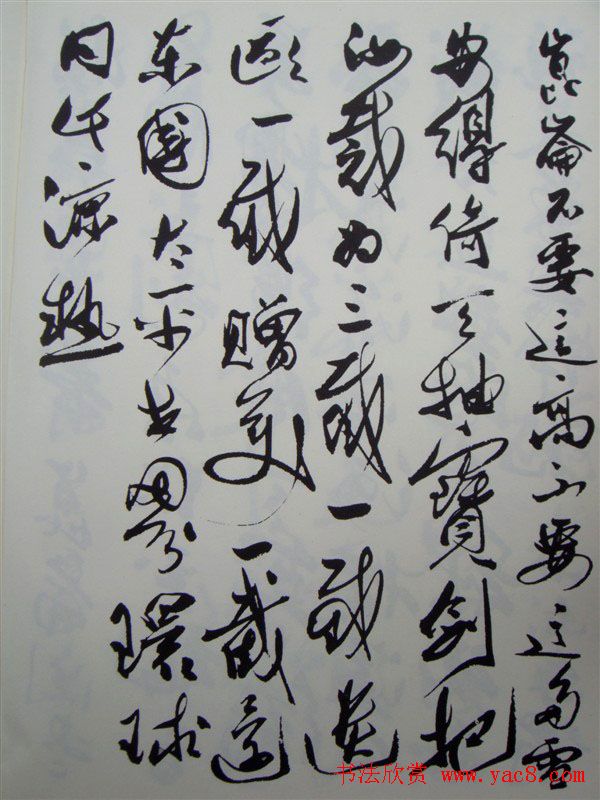 崑崙不要這高不要這多雪
安得倚天抽寶劍把
汝裁为三截一截遗
歐一截贈美一截還
东國太平世界環球
同此涼熱
书法欣赏 www.yac8.com